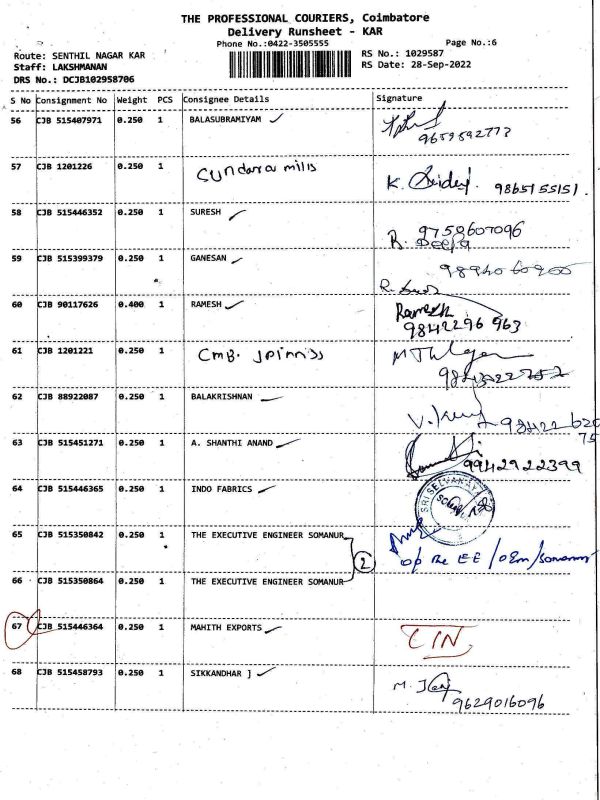 THE PROFESSIONAL COURIERS, Coimbatore
Delivery Runsheet - KAR
Phone No.:0422-3505555
Page No.:6
Route: SENTHIL NAGAR KAR
RS No.: 1029587
Staff: LAKSHMANAN
RS Date: 28-Sep-2022
DRS No.: DCJB102958706
S No Consignment No Weight PCS Consignee Details Signature
56 CJB 515407971 0.250 1 BALASUBRAMIYAM
9659592773
57 CJB 1201226 0.250 1 Sundara mills
K. 9865155151
58 CJB 515446352 0.250 1 SURESH
9758607096
R. Deepa
59 CJB 515399379 0.250 1 GANESAN
60 CJB 90117626 0.400 1 RAMESH
Ramesh
9842296 963
61 CJB 1201221 0.250 1 CMB.
62 CJB 88922087 0.250 1 BALAKRISHNAN
63 CJB 515451271 0.250 1 A. SHANTHI ANAND
9942922399
64 CJB 515446365 0.250 1 INDO FABRICS
65 CJB 515350842 0.250 1 THE EXECUTIVE ENGINEER SOMANUR
2
o/o the EE / O&m / Somanur
66 CJB 515350864 0.250 1 THE EXECUTIVE ENGINEER SOMANUR
67 CJB 515446364 0.250 1 MAHITH EXPORTS
CIN
68 CJB 515458793 0.250 1 SIKKANDHAR J
9629016096